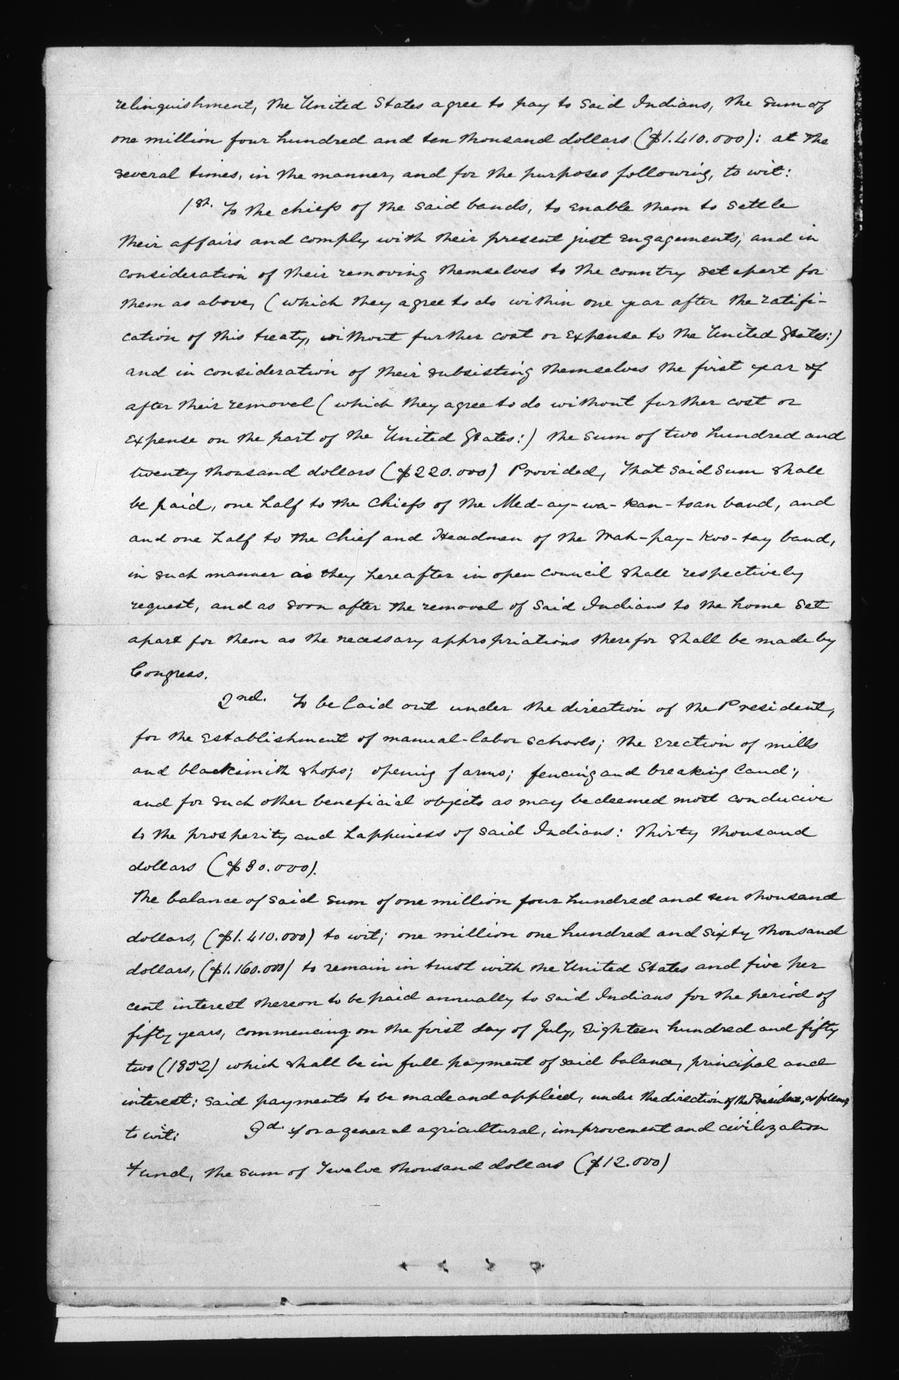 relinquishment, the United States agree to pay to said Indians, the sum of
one million four hundred and ten thousand dollars ($1.410.000): at the
several times, in the manner, and for the purposes following, to wit:
1st. To the chiefs of the said bands, to enable them to settle
their affairs and comply with their present just engagements; and in
consideration of their removing themselves to the country set apart for
them as above, (which they agree to do within one year after the ratifi-
cation of this treaty, without further cost or expense to the United States:)
and in consideration of their subsisting themselves the first year of
after their removal (which they agree to do without further cost or
expense on the part of the United States:) the sum of two hundred and
twenty thousand dollars ($220.000) Provided, That said sum shall
be paid, one half to the Chiefs of the Med-ay-wa-kan-toan band, and
and one half to the Chief and Headmen of the Wah-pay-koo-tay band,
in such manner as they hereafter in open Council shall respectively
request, and as soon after the removal of said Indians to the home set
apart for them as the necessary appropriations therefor shall be made by
Congress.
2nd. To be laid out under the direction of the President,
for the establishment of manual-labor schools; the erection of mills
and blacksmith shops; opening farms; fencing and breaking land;
and for such other beneficial objects as may be deemed most conducive
to the prosperity and happiness of said Indians: thirty thousand
dollars ($30.000).
The balance of said sum of one million four hundred and ten thousand
dollars, ($1.410.000) to wit; one million one hundred and sixty thousand
dollars, ($1.160.000) to remain in trust with the United States and five per
cent interest thereon to be paid annually to said Indians for the period of
fifty years, commencing on the first day of July, Eighteen hundred and fifty
two (1852) which shall be in full payment of said balance, principal and
interest: said payments to be made and applied, under the direction of the President, as follows,
to wit: 3d. For a general agricultural, improvement and civilization
Fund, the sum of Twelve thousand dollars ($12.000)